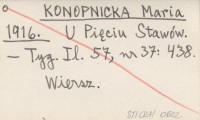 KONOPNICKA Maria
1916. U Pięciu Stawów.
– Tyg. Il. 57, nr 37: 438.
Wiersz.